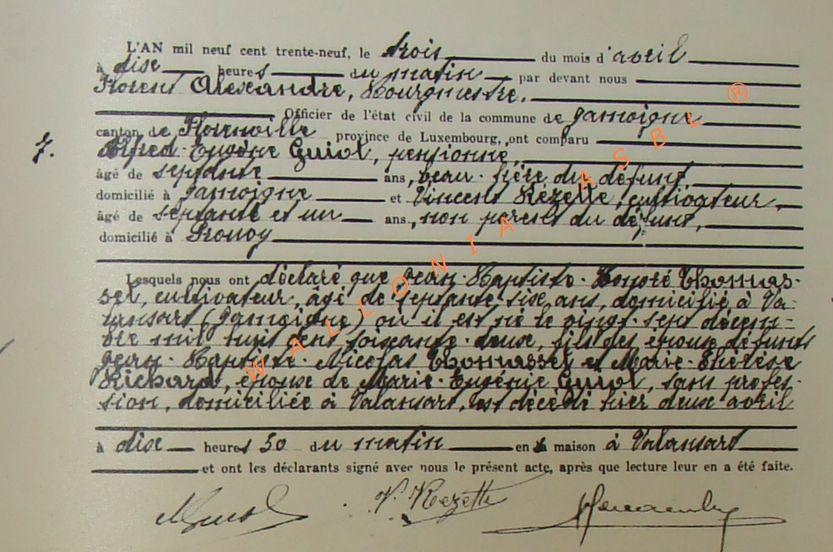 L'AN mil neuf cent trente-neuf, le trois du mois d'avril
à dix heures du matin par devant nous
Florent Alexandre, Bourgmestre,
Officier de l'état civil de la commune de Jamoigne
canton de Florenville province de Luxembourg, ont comparu
7. Alfred-Eugène Guiot, pensionné,
âgé de septante ans, beau-frère du défunt
domicilié à Jamoigne et Vincent Rézette, cultivateur,
âgé de septante et un ans, non parent du défunt,
domicilié à Prouvy
Lesquels nous ont déclaré que Jean-Baptiste-Honoré Thomas-
ser, cultivateur, âgé de septante six ans, domicilié à Va-
lansart (Jamoigne) où il est né le vingt-sept décem-
bre mil huit cent soixante-deux, fils des époux défunts
Jean-Baptiste-Nicolas Thomasser et Marie-Thérèse
Richard, époux de Marie-Eugénie Guiot, sans profes-
sion, domiciliée à Valansart, est décédé hier deux avril
à dix heures 30 du matin en sa maison à Valansart
et ont les déclarants signé avec nous le présent acte, après que lecture leur en a été faite.
V. Rezette
WALLONIA ASBL ®